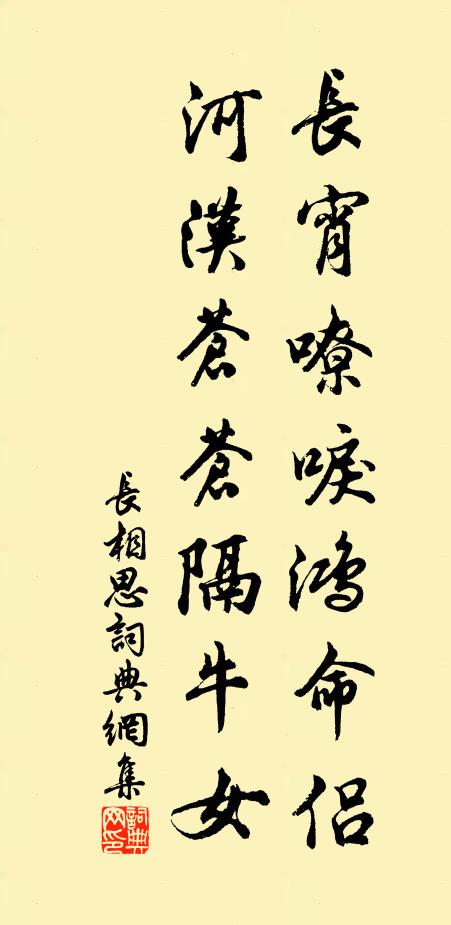 長宵嘹唳鴻命侣
河漢蒼蒼隔牛女
長相思詞典網集
詞典網印